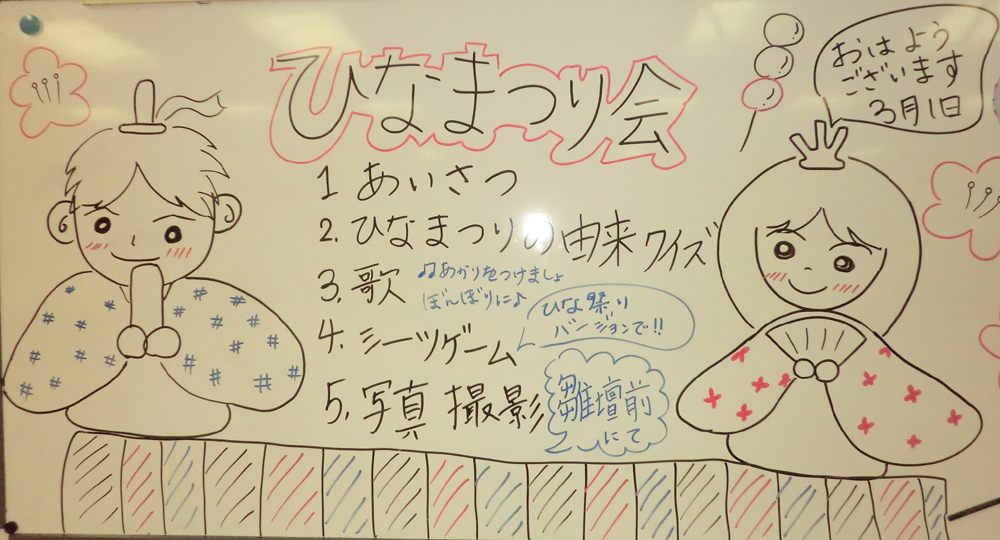 ひなまつり会
おはよう
ございます
3月1日
1 あいさつ
2. ひなまつりの由来クイズ
3. 歌
♫あかりをつけましょ
ぼんぼりに♪
4. シーツゲーム
ひな祭り
バージョンで!!
5. 写真撮影
雛壇前
にて